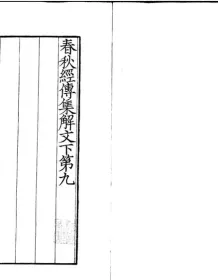 春秋經傳集解文下第九